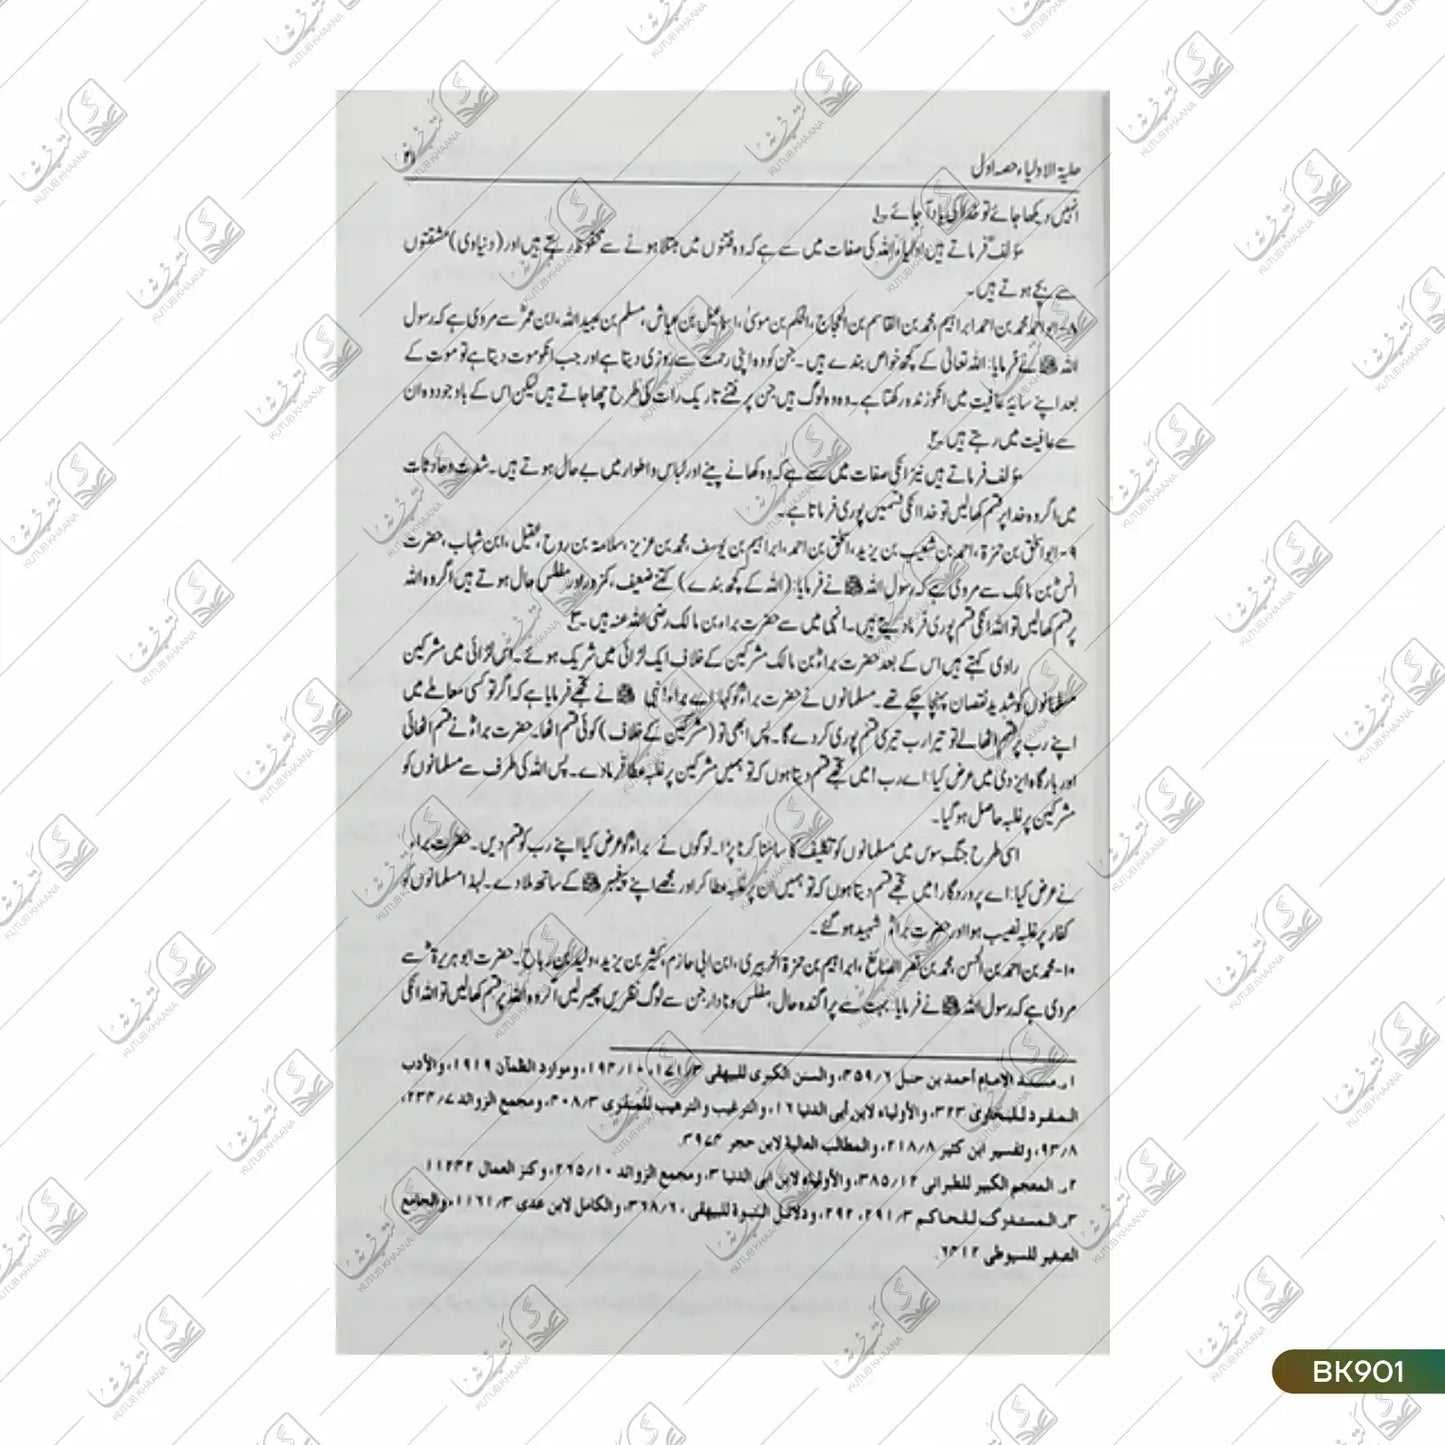 حلیۃ الاولیاء حصہ اول
۲۱
انہیں دیکھا جائے تو خدا کی یاد آ جائے۔۱
مؤلف فرماتے ہیں اولیاء اللہ کی صفات میں سے ہے کہ وہ فتنوں میں مبتلا ہونے سے محفوظ رہتے ہیں اور (دنیاوی) مشقتوں
سے بچے ہوتے ہیں۔
۸- ابواحمد محمد بن احمد ابراہیم، محمد بن القاسم بن الحجاج، الحکم بن موسیٰ، اسماعیل بن عیاش، مسلم بن عبید اللہ، ابن عمرؓ سے مروی ہے کہ رسول
اللہ ﷺ نے فرمایا: اللہ تعالیٰ کے کچھ خواص بندے ہیں۔ جن کو وہ اپنی رحمت سے روزی دیتا ہے اور جب انکو موت دیتا ہے تو موت کے
بعد اپنے سایۂ عافیت میں انکو زندہ رکھتا ہے۔ وہ وہ لوگ ہیں جن پر فتنے تاریک رات کی طرح چھا جاتے ہیں لیکن اس کے باوجود وہ ان
سے عافیت میں رہتے ہیں۔۲
مؤلف فرماتے ہیں نیز انکی صفات میں سے ہے کہ وہ کھانے پینے اور لباس و اطوار میں بے حال ہوتے ہیں۔ شدت و حادثات
میں اگر وہ خدا پر قسم کھالیں تو خدا انکی قسمیں پوری فرماتا ہے۔
۹- ابو اسحٰق بن حمزۃ، احمد بن شعیب بن یزید، اسحٰق بن احمد، ابراہیم بن یوسف، محمد بن عزیز، سلامۃ بن روح، عقیل، ابن شہاب، حضرت
انسؓ بن مالک سے مروی ہے کہ رسول اللہ ﷺ نے فرمایا: (اللہ کے کچھ بندے) کتنے ضعیف، کمزور اور مفلس حال ہوتے ہیں اگر وہ اللہ
پر قسم کھالیں تو اللہ انکی قسم پوری فرما دیتے ہیں۔ انہی میں سے حضرت براء بن مالک رضی اللہ عنہ ہیں۔۳
راوی کہتے ہیں اس کے بعد حضرت براءؓ بن مالک مشرکین کے خلاف ایک لڑائی میں شریک ہوئے۔ اس لڑائی میں مشرکین
مسلمانوں کو شدید نقصان پہنچا چکے تھے۔ مسلمانوں نے حضرت براءؓ کو کہا: اے براء! نبی ﷺ نے تجھے فرمایا ہے کہ اگر تو کسی معاملے میں
اپنے رب پر قسم اٹھا لے تو تیرا رب تیری قسم پوری کر دے گا۔ پس ابھی تو (مشرکین کے خلاف) کوئی قسم اٹھا۔ حضرت براءؓ نے قسم اٹھائی
اور بارگاہ ایزدی میں عرض کیا: اے رب! میں تجھے قسم دیتا ہوں کہ تو ہمیں مشرکین پر غلبہ عطا فرما دے۔ پس اللہ کی طرف سے مسلمانوں کو
مشرکین پر غلبہ حاصل ہو گیا۔
اسی طرح جنگ سوس میں مسلمانوں کو تکلیف کا سامنا کرنا پڑا۔ لوگوں نے براءؓ کو عرض کیا اپنے رب کو قسم دیں۔ حضرت براء
نے عرض کیا: اے پروردگار! میں تجھے قسم دیتا ہوں کہ تو ہمیں ان پر غلبہ عطا کر اور مجھے اپنے پیغمبر ﷺ کے ساتھ ملا دے۔ لہذا مسلمانوں کو
کفار پر غلبہ نصیب ہوا اور حضرت براءؓ شہید ہو گئے۔
۱۰- محمد بن احمد بن الحسن، محمد بن نصر الصائغ، ابراہیم بن حمزۃ الزبیری، ابن ابی حازم، کثیر بن یزید، ولید بن رباح۔ حضرت ابو ہریرۃؓ سے
مروی ہے کہ رسول اللہ ﷺ نے فرمایا: بہت سے پراگندہ حال، مفلس و نادار جن سے لوگ نظریں پھیر لیں اگر وہ اللہ پر قسم کھالیں تو اللہ انکی
۱۔ مسند الإمام أحمد بن حنبل ۳۵۹/۶، والسنن الکبری للبیهقی ۱۷۱/۳، ۱۹۳/۱۰، وموارد الظمآن ۱۹۱۹، والأدب
المفرد للبخاری ۳۲۳، والأولیاء لابن أبی الدنیا ۱۶، والترغیب والترهیب للمنذری ۳۰۸/۳، ومجمع الزوائد ۲۳۳/۷،
۹۳/۸، وتفسیر ابن کثیر ۲۱۸/۸، والمطالب العالیة لابن حجر ۳۹۷۴.
۲۔ المعجم الکبیر للطبرانی ۳۸۵/۱۲، والأولیاء لابن ابی الدنیا ۳، ومجمع الزوائد ۲۶۵/۱۰، وکنز العمال ۱۱۲۴۲
۳۔ المستدرک للحاکم ۲۹۱/۳، ۲۹۲، ودلائل النبوة للبیهقی ۳۶۸/۶، والکامل لابن عدی ۱۱۶۱/۳، والجامع
الصغیر للسیوطی ۶۴۱۲.
کتب خانہ
KUTUB KHAANA
BK901